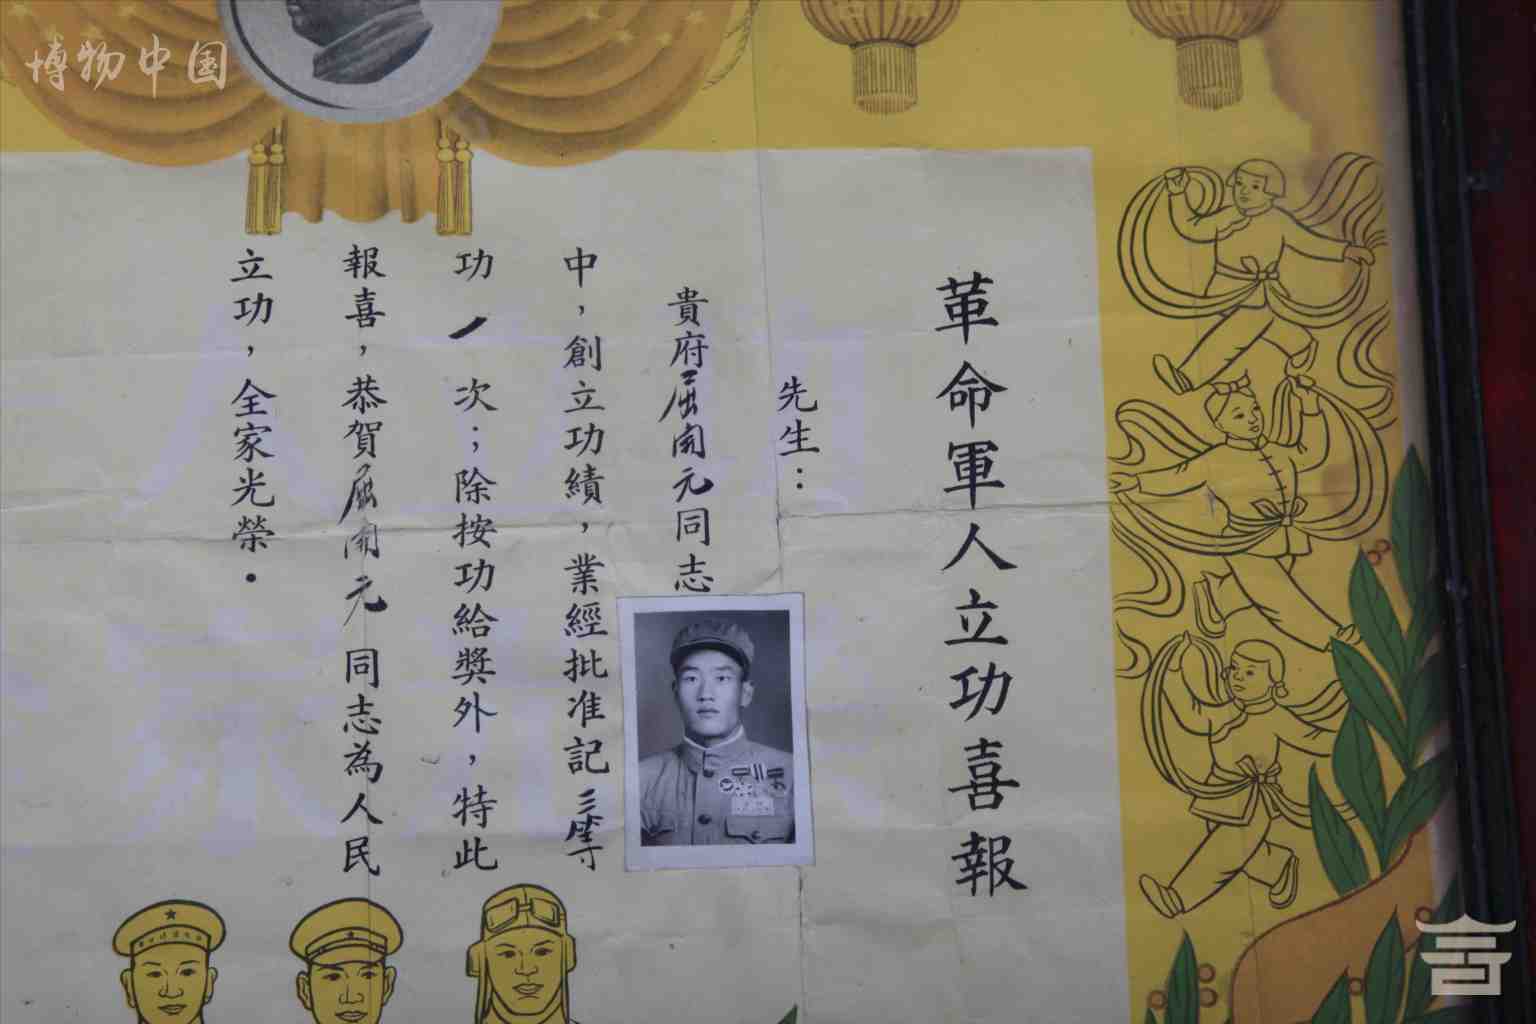 博物中国
革命軍人立功喜報
先生：
貴府屈開元同志
中，創立功績，業經批准記三等
功一次；除按功給獎外，特此
報喜，恭賀屈開元同志為人民
立功，全家光榮．